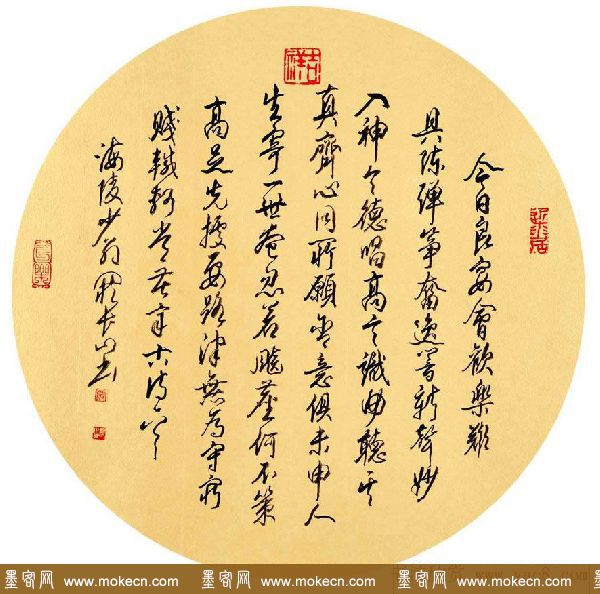 吉祥
今日良宴會歡樂難
具陳彈箏奮逸響新聲妙
入神令德唱高言識曲聽其
真齊心同所願含意俱未申人
生寄一世奄忽若飈塵何不策
高足先據要路津無為守窮
賤轗軻常苦辛古诗
海陵少翁長山书
墨客网 www.mokecn.com 墨客网 www.mokecn.com 墨客网 www.mokecn.com